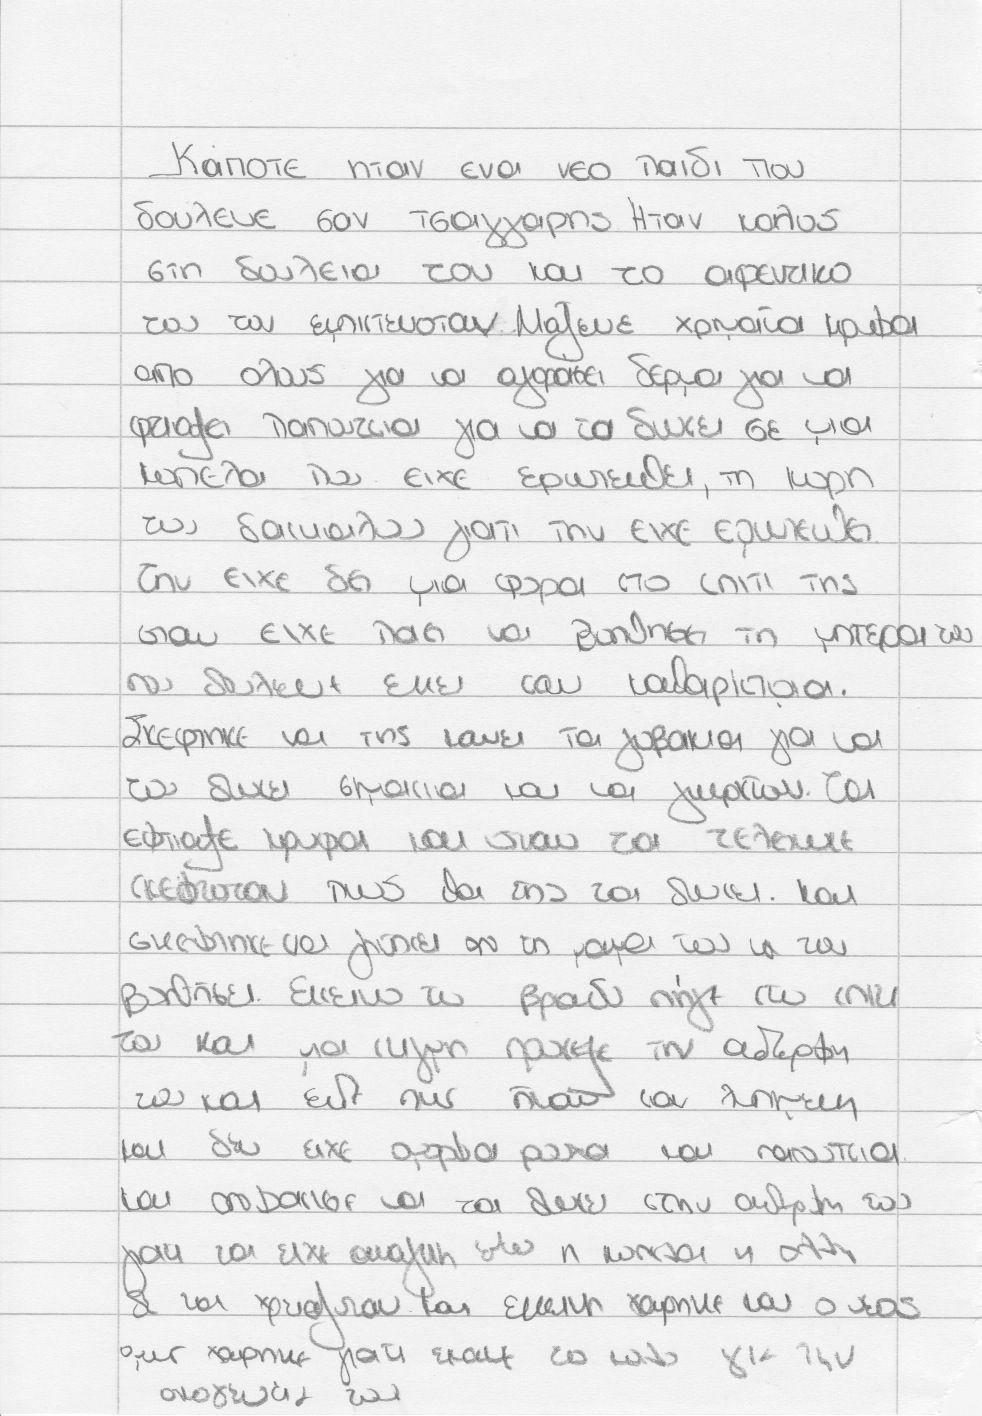 Κάποτε ηταν ενα νεο παιδι που
δουλευε σαν τσαγγαρης Ηταν καλος
στη δουλεια του και το αφεντικο
του τον εμπιστευοταν. Μαζευε χρηματα κρυφα
απο ολους για να αγορασει δερμα για να
φτιαξει παπουτσια για να τα δωσει σε μια
κοπελα που ειχε ερωτευθει, τη κορη
του δασκαλου γιατι την ειχε ερωτευθει
την ειχε δει μια φορα στο σπιτι της
οταν ειχε παει να βοηθησει τη μητερα του
που δουλευε εκει σαν καθαριστρια.
Σκεφτηκε να της κανει τα γοβακια για να
του δωσει σημασια και να γνωριστουν. Τα
εφτιαξε κρυφα και οταν τα τελειωσε
σκεφτοταν πως θα της τα δωσει. Και
σκεφτηκε να ζητησει απο τη μαμα του να τον
βοηθησει. Εκεινο το βραδυ πήγε στο σπιτι
του και μια στιγμη προσεξε την αδερφη
του και ειδε πως ηταν
και δεν ειχε ομορφα ρουχα και παπουτσια
και αποφασισε να τα δωσει στην αδερφη του
γιατι τα ειχε αναγκη ενω η κοπελα η αλλη
δε τα χρειαζοταν. Και εκεινη χαρηκε και ο νεος
ομως χαρηκε γιατι εκανε το καλο για την
οικογενεια του